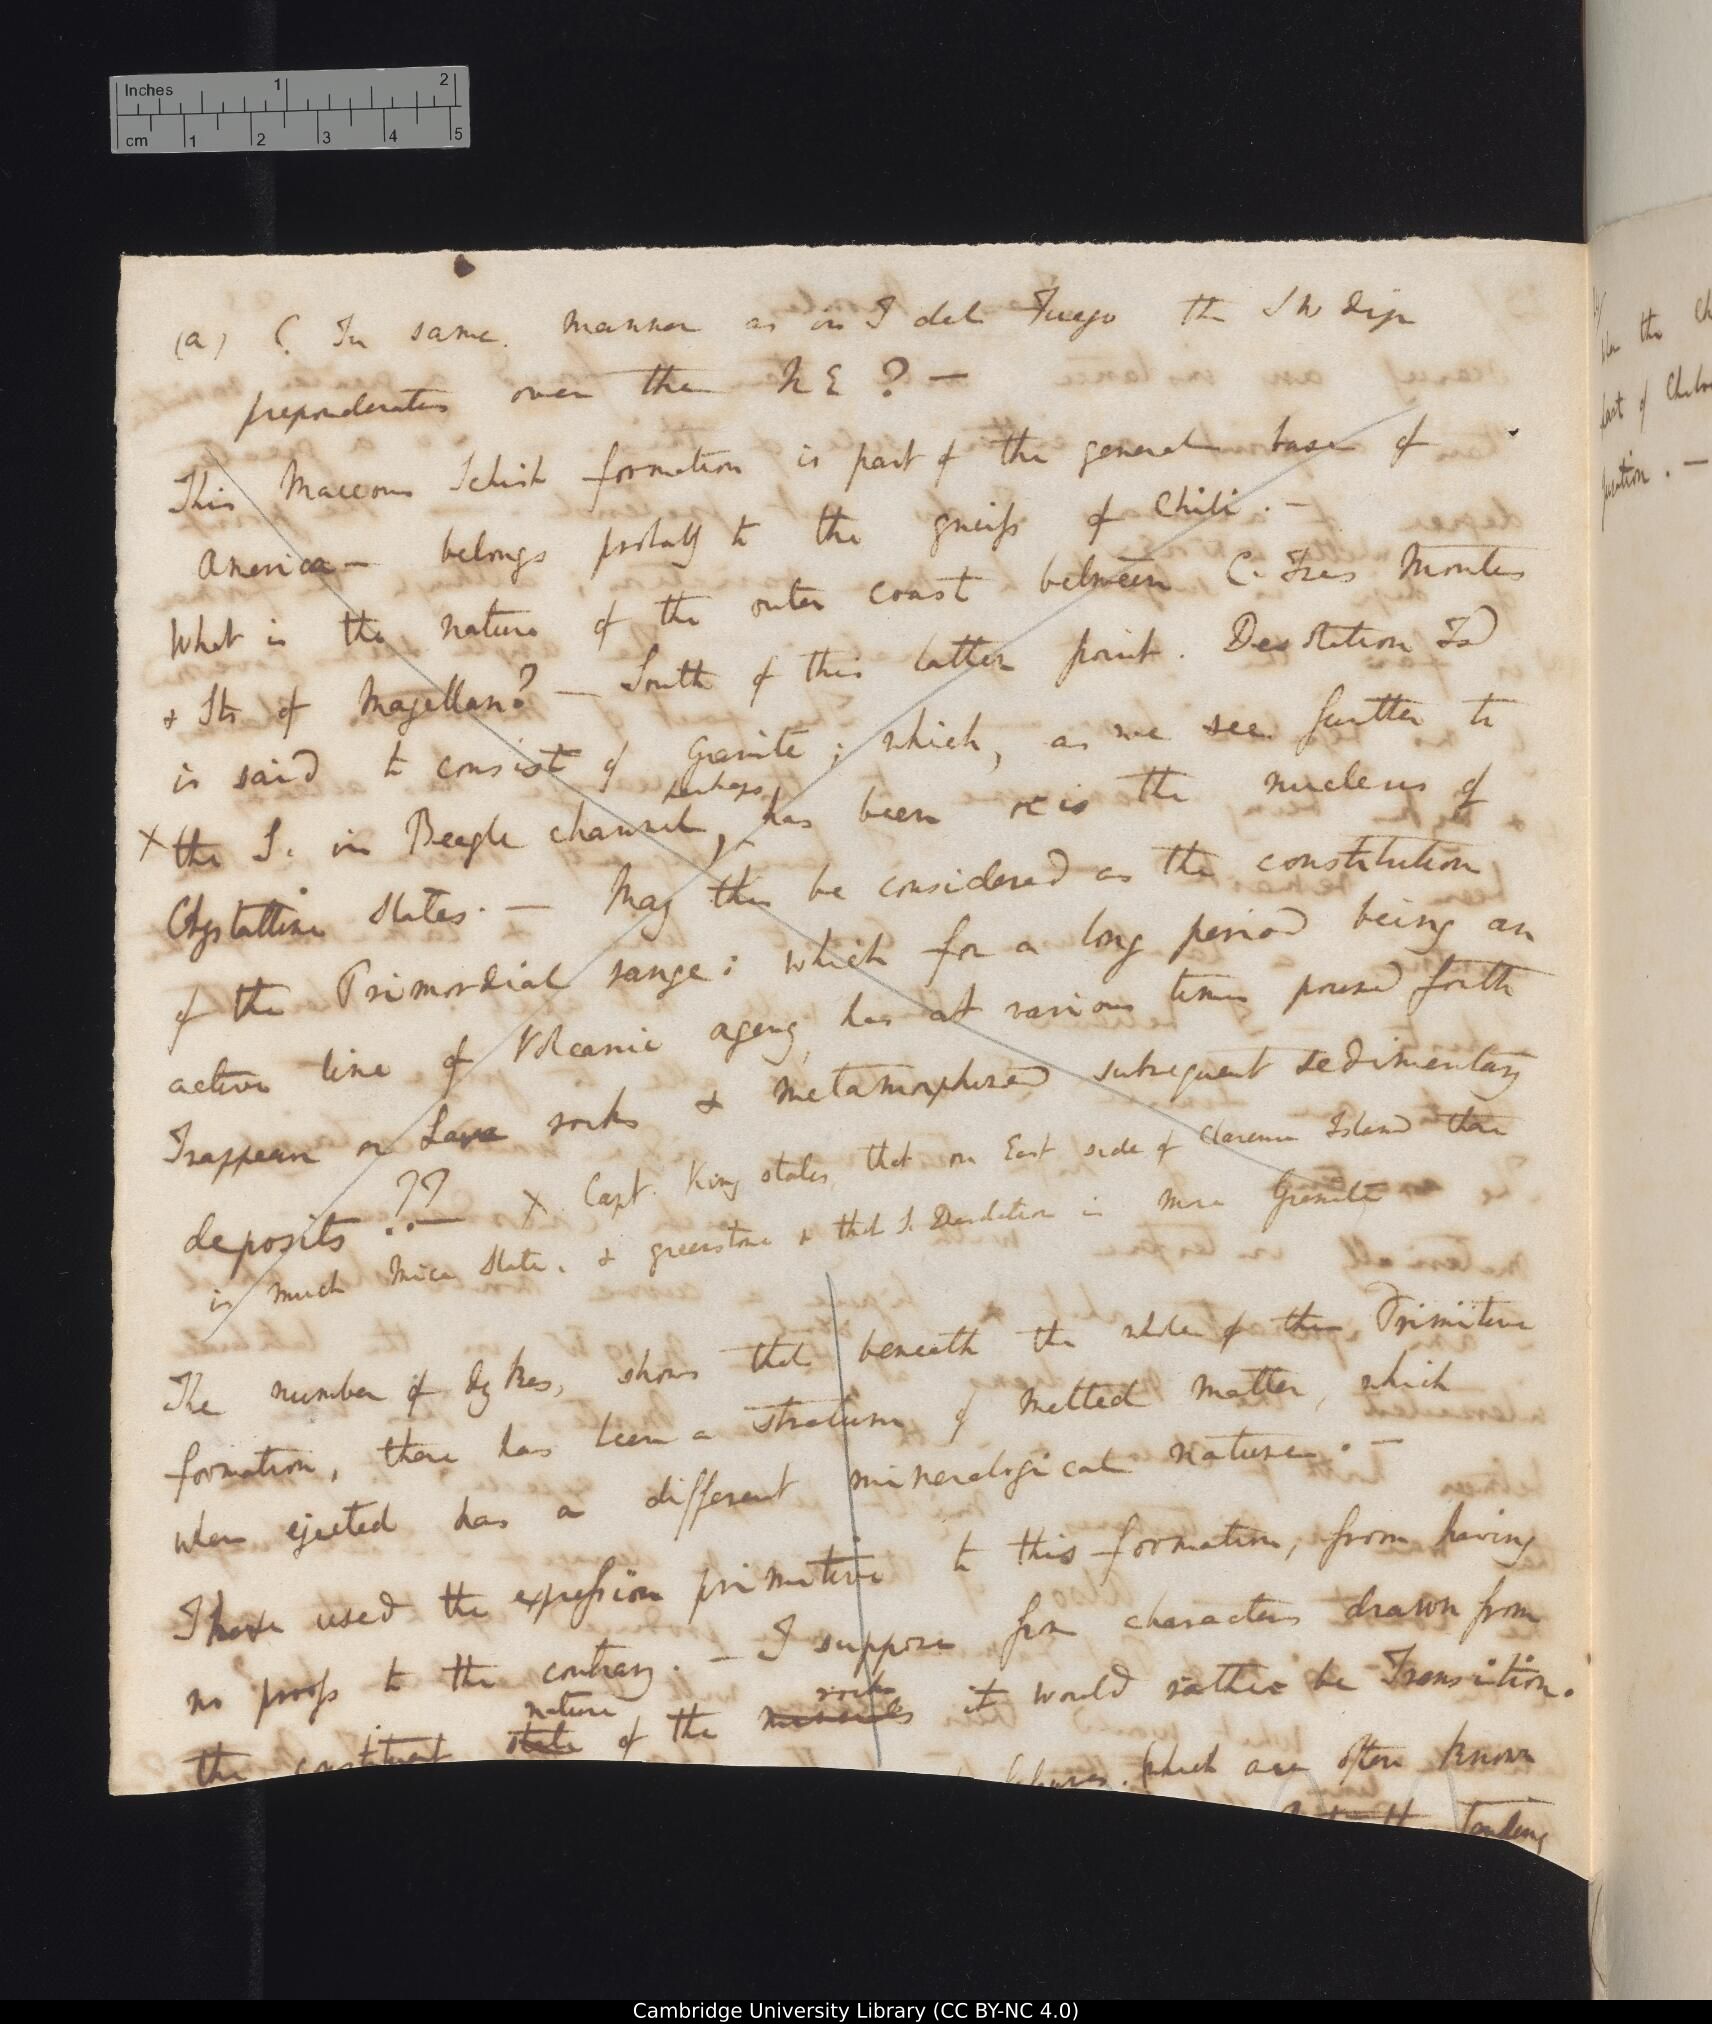 Inches 1 2
cm 1 2 3 4 5
(a) C. In same. manner as in T del Fuego the SW dips
preponderates over the NE? —
This Maceous Schist formation is part of the general base of
America — belongs probably to the gneiss of Chili. —
What is the nature of the outer coast between C. Tres Montes
& Sts of Magellan? — South of this latter point. Desolation Isd
is said to consist of Granite; which, as we see further to
perhaps
X the S. in Beagle channel, has been or is the nucleus of
Chrystalline Slates. — May this be considered as the constitution
of the Primordial range: which for a long period being an
active line of Volcanic agency, has at various times poured forth
Trappean or Lava rocks & metamorphized subsequent sedimentary
deposits ??— X Capt. King states that on East side of Clarence Island there
is much Mica Slate. & greenstone & that S. Desolation is mere Granite
The number of dykes, shows that beneath the whole of this Primitive
formation, there has been a stratum of melted matter, which
when ejected has a different mineralogical nature. —
I have used the expression primitive to this formation, from having
no proofs to the contrary. — I suppose from characters drawn from
nature rocks
the constituent state of the minerals it would rather be Transition.
which are often known
tending
the Ch
part of
position. —
Cambridge University Library (CC BY-NC 4.0)